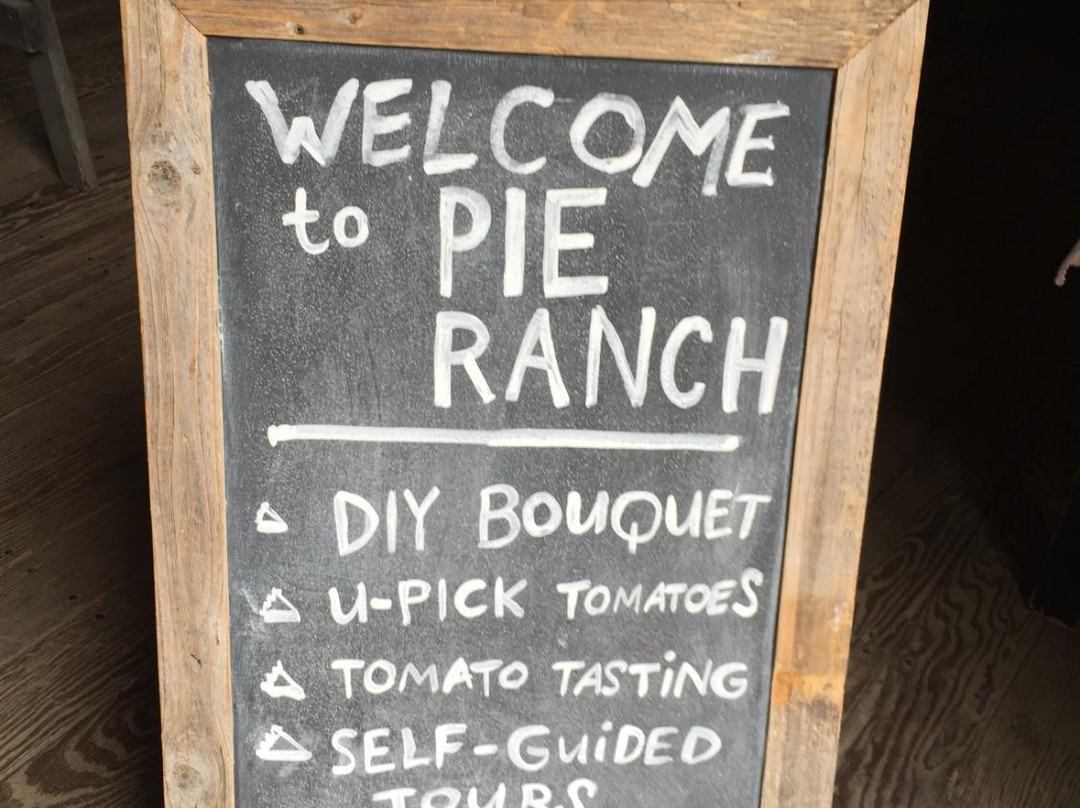 WELCOME
to PIE
RANCH
DIY BOUQUET
U-PICK TOMATOES
TOMATO TASTiNG
SELF-GUiDED
TOURS